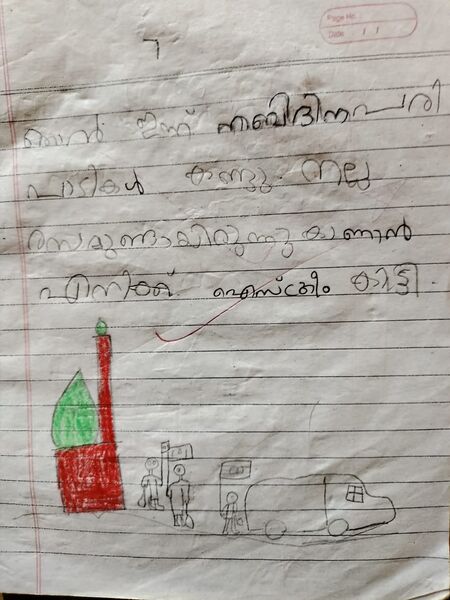 Page No.:
Date: / /
7
ഞാൻ ഇന്ന് നബിദിനപരി
പാടികൾ കണ്ടു നല്ല
രസമുണ്ടായിരുന്നു കാണാൻ
എനിക്ക് ഐസ്ക്രീം കിട്ടി.